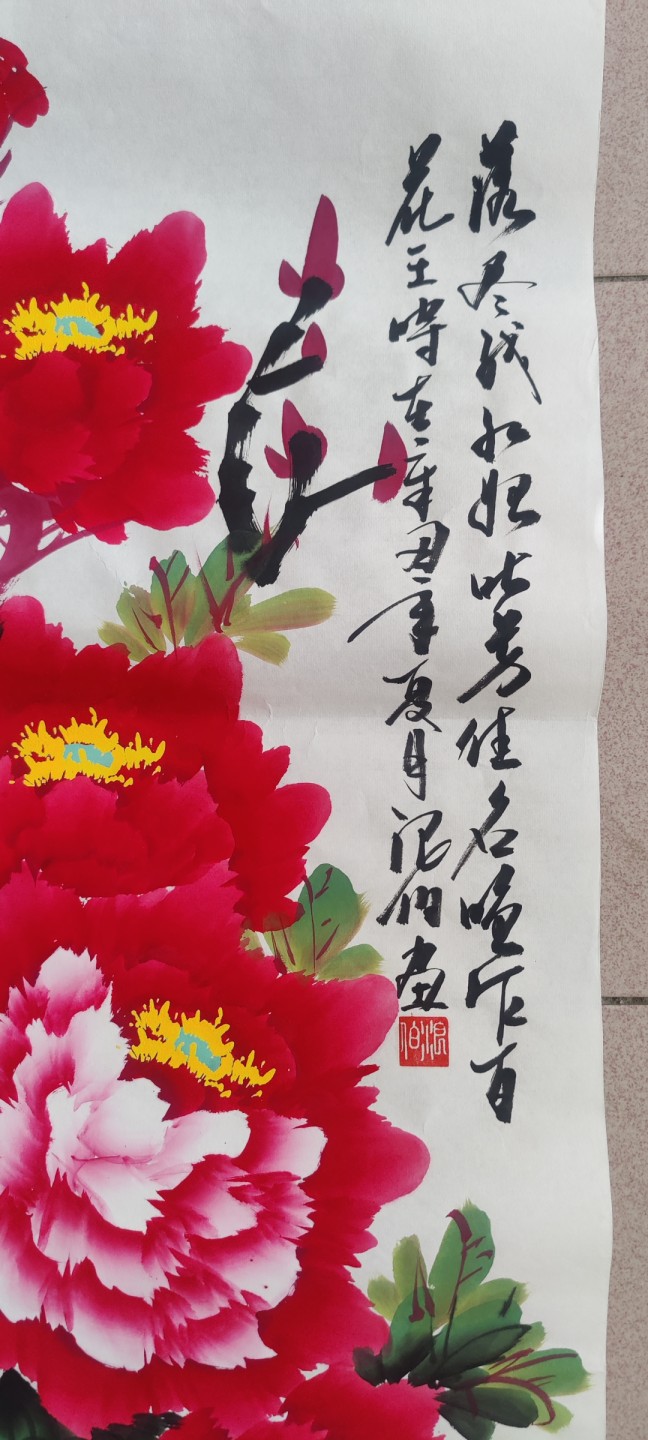 落尽残红始吐芳佳名唤作百
花王时在辛丑年夏月浪伯画
浪伯